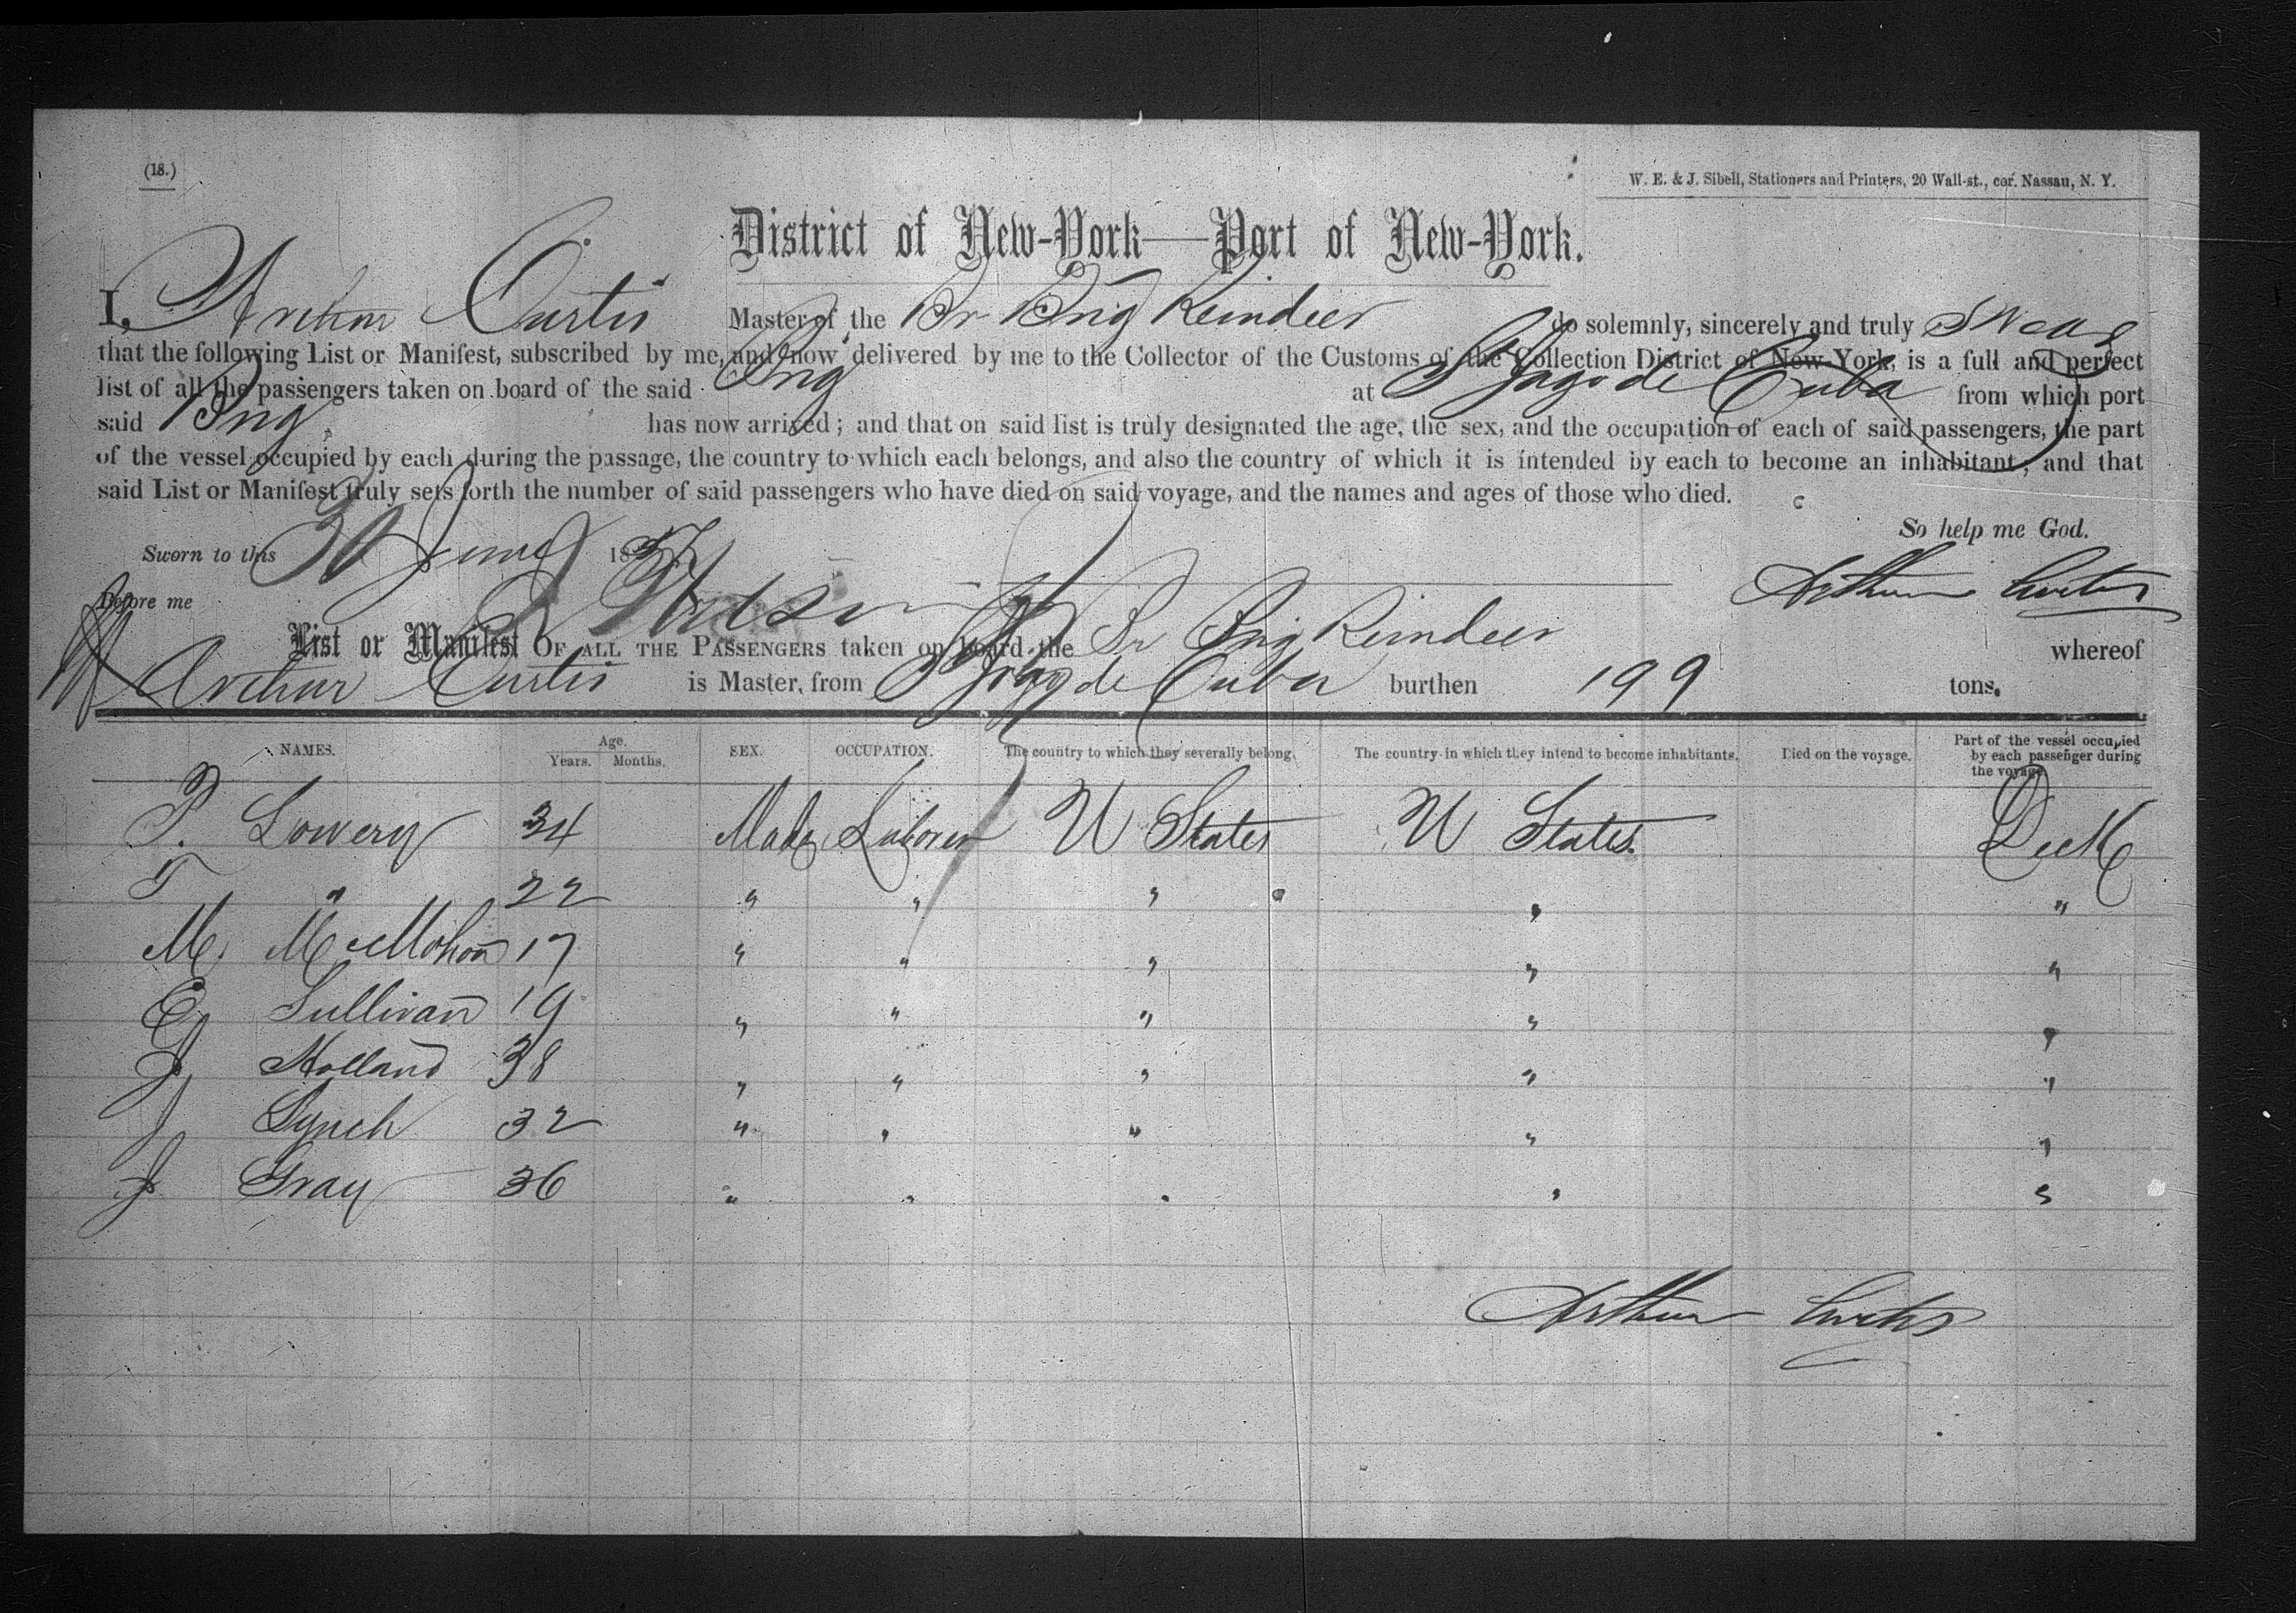 (18.)
W. E. & J. Sibell, Stationers and Printers, 20 Wall-st., cor. Nassau, N. Y.
District of New-York—Port of New-York.
I, Arthur Curtis Master of the Br Brig Reindeer do solemnly, sincerely and truly Swear
that the following List or Manifest, subscribed by me, and now delivered by me to the Collector of the Customs of the Collection District of New-York, is a full and perfect
list of all the passengers taken on board of the said Brig at St Jago de Cuba from which port
said Brig has now arrived; and that on said list is truly designated the age, the sex, and the occupation of each of said passengers, the part
of the vessel occupied by each during the passage, the country to which each belongs, and also the country of which it is intended by each to become an inhabitant; and that
said List or Manifest truly sets forth the number of said passengers who have died on said voyage, and the names and ages of those who died.
So help me God.
Sworn to this 30 June 18
Arthur Curtis
Before me
List or Manifest OF ALL THE PASSENGERS taken on board the Br Brig Reindeer whereof
Arthur Curtis is Master, from St Jago de Cuba burthen 199 tons.
NAMES. Age. Years. Months. SEX. OCCUPATION. The country to which they severally belong. The country in which they intend to become inhabitants. Died on the voyage. Part of the vessel occupied by each passenger during the voyage
P. Lowery 34 Male Laborer U States U States Deck
T " 22 " " " " "
M. McMohon 17 " " " " "
E. Sullivan 19 " " " " "
J Holland 38 " " " " "
J Lynch 32 " " " " "
J Gray 36 " " " " "
Arthur Curtis